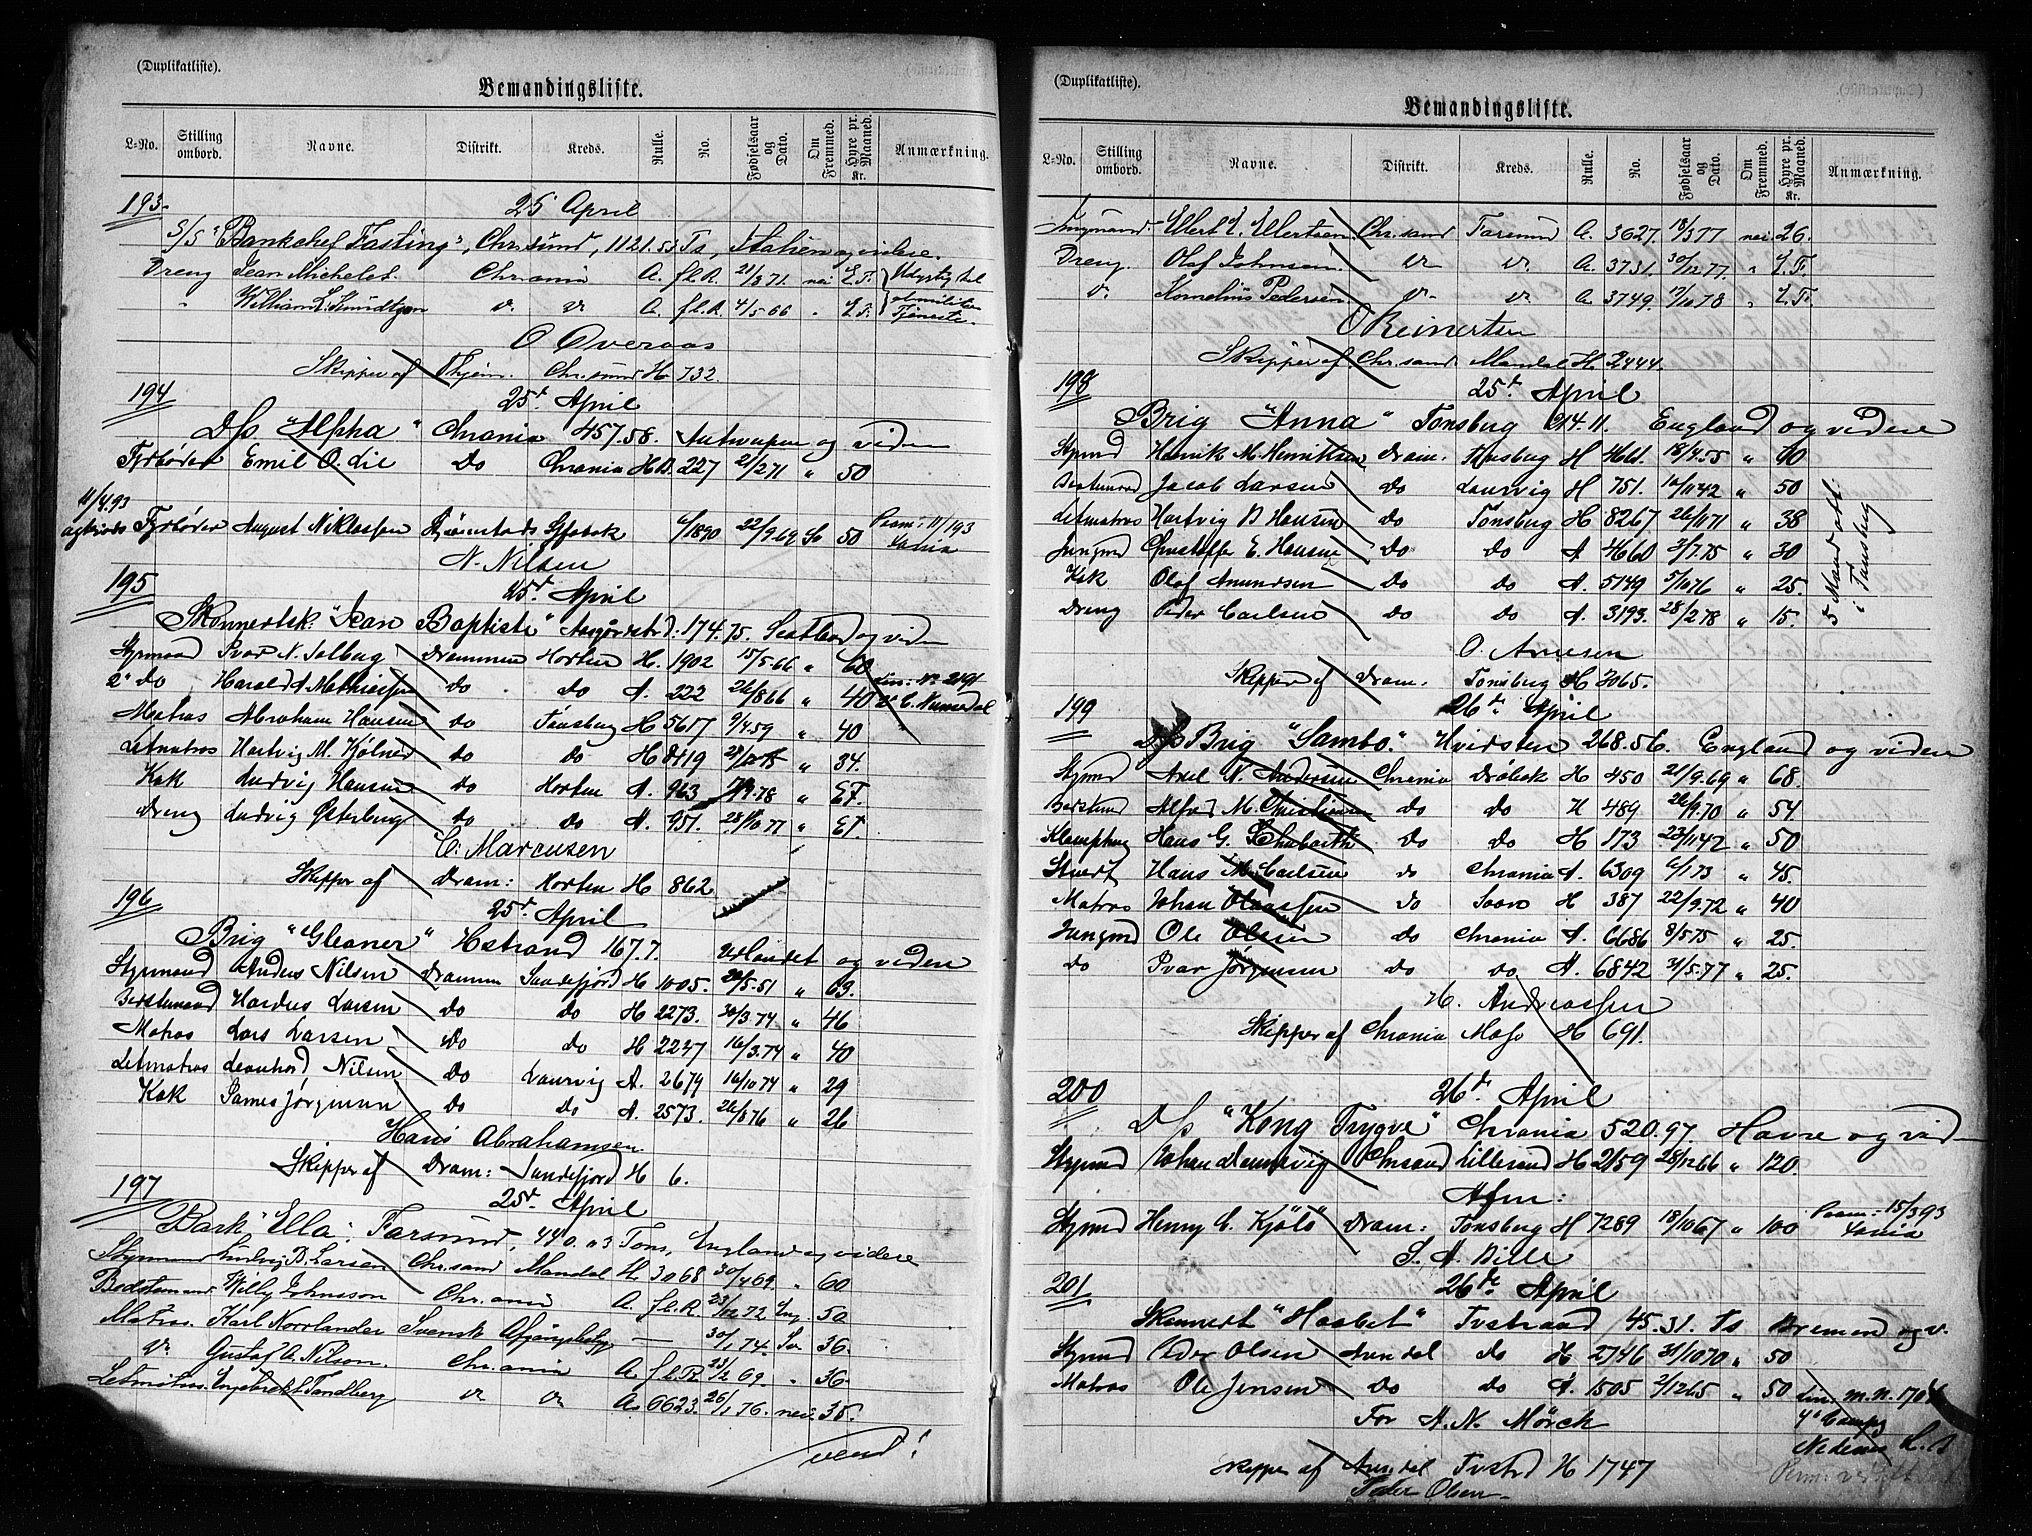 (Duplikatliste).
Bemandingsliste.
L-No. Stilling ombord. Navne. Distrikt. Kreds. Rulle. No. Fødselsaar og Dato. Om Fremmed. Hyre pr. Maaned. Kr. Anmærkning.
193. 25 April
S/S "Bankchef Fasting", Chr.sund, 1121.53 Ts, Italien og videre.
Dreng Jean Michelet. Chr.ania A. fl.R. 21/8 71. nei E.F.
" William L. Smidtgen v. v. A. fl.R. 4/5 66 . E.F. Tjeneste.
O Overaas
Skipper af Thjem. Chr.sund H. 732.
194 25de April
D/s "Alpha" Chrania 457.58. Antwerpen og videre
Fyrbøder Emil O. Lie Do Chrania H.D. 227 2/2 71 " 50
11/4.93
Fyrbøder August Niklassen 6/1890 22/9.69 Sv 50
N. Nilsen
195 25de April
Skonnertsk: "Jean Baptiste" Aasgårdstrd: 174.75. Scotland og videre
Styrmand Ivar N. Solberg Drammen Horten H. 1902 15/5.66 " 60
2' do Harald A Mathiesen do do A. 222 26/8 66 " 40
Matros Abraham Hansen do Tønsberg H 5617 9/4.59 " 40
Letmatros Hartvig M. Kjølner do do H 8419 28/12 75 " 34.
Kok Ludvig Hansen do Horten A. 963 9.78 " EF.
Dreng Ludvig Østerberg do do A. 951. 28/10 77 " EF.
C. Marcusen
Skipper af Dram: Horten H 862
196 25de April
Brig "Gleaner" Hstrand 167.7. Udlandet og videre
Styrmand Anders Nilsen Drammen Sandefjord H 1005. 29/5.51 " 69.
Bestemand Hardus Larsen do do H 2273. 30/3.74 " 46
Matros Lars Larsen do do H 2247 16/3.74 " 40
Letmatros Leonhard Nilsen do Laurvig A. 2679 16/10 74 " 29
Kok James Jørgensen do do A. 2573. 26/1 76 " 26
Hans Abrahamsen
Skipper af Dram: Sandefjord H 6.
197 25de April
Bark "Ella", Farsund, 440.03 Tons, England og videre
Styrmand Ludvig B. Larsen Chr.sand Mandal H. 3068 30/4 69. " 60
Bedstemand Willy Johnsson Chr.ania A. fl.R. 23/12 72 Eng. 50
Matros Karl Norrlander Svensk Afgangsbetg — 30/1 74. Sv 36.
v Gustaf A. Nilson. Chr.ania A fl.R. 23/2 69. . 36
Letmatros. Engebrekt Tandberg v v A. 6623. 26/1 76. nei. 35.
vend!
(Duplikatliste).
Bemandingsliste.
L-No. Stilling ombord. Navne. Distrikt. Kreds. Rulle. No. Fødselsaar og Dato. Om Fremmed. Hyre pr. Maaned. Kr. Anmærkning.
Jungmand Ellert E. Ellertsen Chr.sand Farsund A. 3627. 18/3 77 nei 26.
Dreng. Olaf Johnsen v v. A. 3731. 30/12 77. " E.F.
v. Kornelius Pedersen v v A. 3749. 17/10 78 " E.F.
O Reinertsen
Skipper af Chr.sand Mandal H 2444.
198 25de April
Brig "Anna" Tønsberg 214.11. England og videre
Stymd Henrik M. Henriksen Dram. Tønsberg H 4611. 18/4.55 " 70
Bestemand Jacob Larsen do Laurvig H 751. 10/11 42 " 50
Letmatros Hartvig B Hansen do Tønsberg H 8267 26/11 71 " 38
Jungmd Christoffer E. Hansen do do A 4660 3/7.75 " 30
Kok Olaf Amundsen do do A. 5149 5/10 76 " 25.
Dreng Peder Carlsen do do A. 3193. 28/2 78 " 15.
5 Mand afbt: i Tønsberg
O. Arnesen
Skipper af Dram. Tønsberg H 2065.
199 26de April
Brig "Sambo" Hvidsten 268.56. England og videre
Stymd Axel N. Andersen Chrania Drøbak H 450 21/9.69 " 68.
Bestmd Alfred M. Christiansen do do H 489 26/9.70 " 54
Hans G. do do H 173 23/11 42 " 50
Stuert Hans A. Carlsen do Chrania A. 6309 6/1 73 " 45.
Matros Johan Olaussen do Soon H 387 22/9.72 " 40
Jungmd Ole Olsen do Chrania A. 6686 8/5 75 " 25.
do Ivar Jørgensen do do A. 6842 31/5.77 " 25.
H. Andreassen
Skipper af Chrania Moss H 691.
200 26de April
D/s "Kong Trygve" Chrania 520.97. Havre og vid
Stymd Johan Dannevig Chrsand Lillesand H 2159 28/12 66 " 120.
Afm:
Stymd Henry C. Kjølø Dram: Tønsberg H 7289 18/10 67 " 100
S. A. Bille
201 26de April
Skonnert "Haabet" Tvstrand 45.31. Ts Bremen og v.
Stymd Peder Olsen Arendal do H 2746 31/10 70 " 50
Matros Ole Jensen do do A. 1505 2/12 65 " 50
For A. N. Mörch
Skipper af Arendal Tvstrd H 1747
Peder Olsen